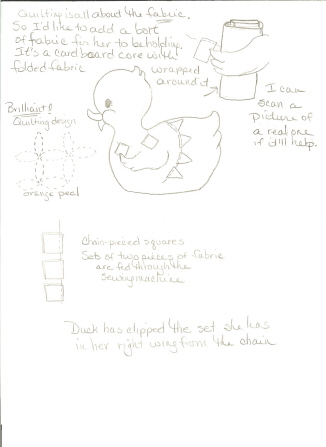 Quilting is all about the fabric.
So I'd like to add a bolt
of fabric for her to be holding.
It's a cardboard core with
folded fabric
wrapped
around it
I can
scan a
picture of
a real one
if it'll help.
Brilliant!
Quilting design
orange peel
Chain-pieced squares
Sets of two pieces of fabric
are fed through the
sewing machine
Duck has clipped the set she has
in her right wing from the chain